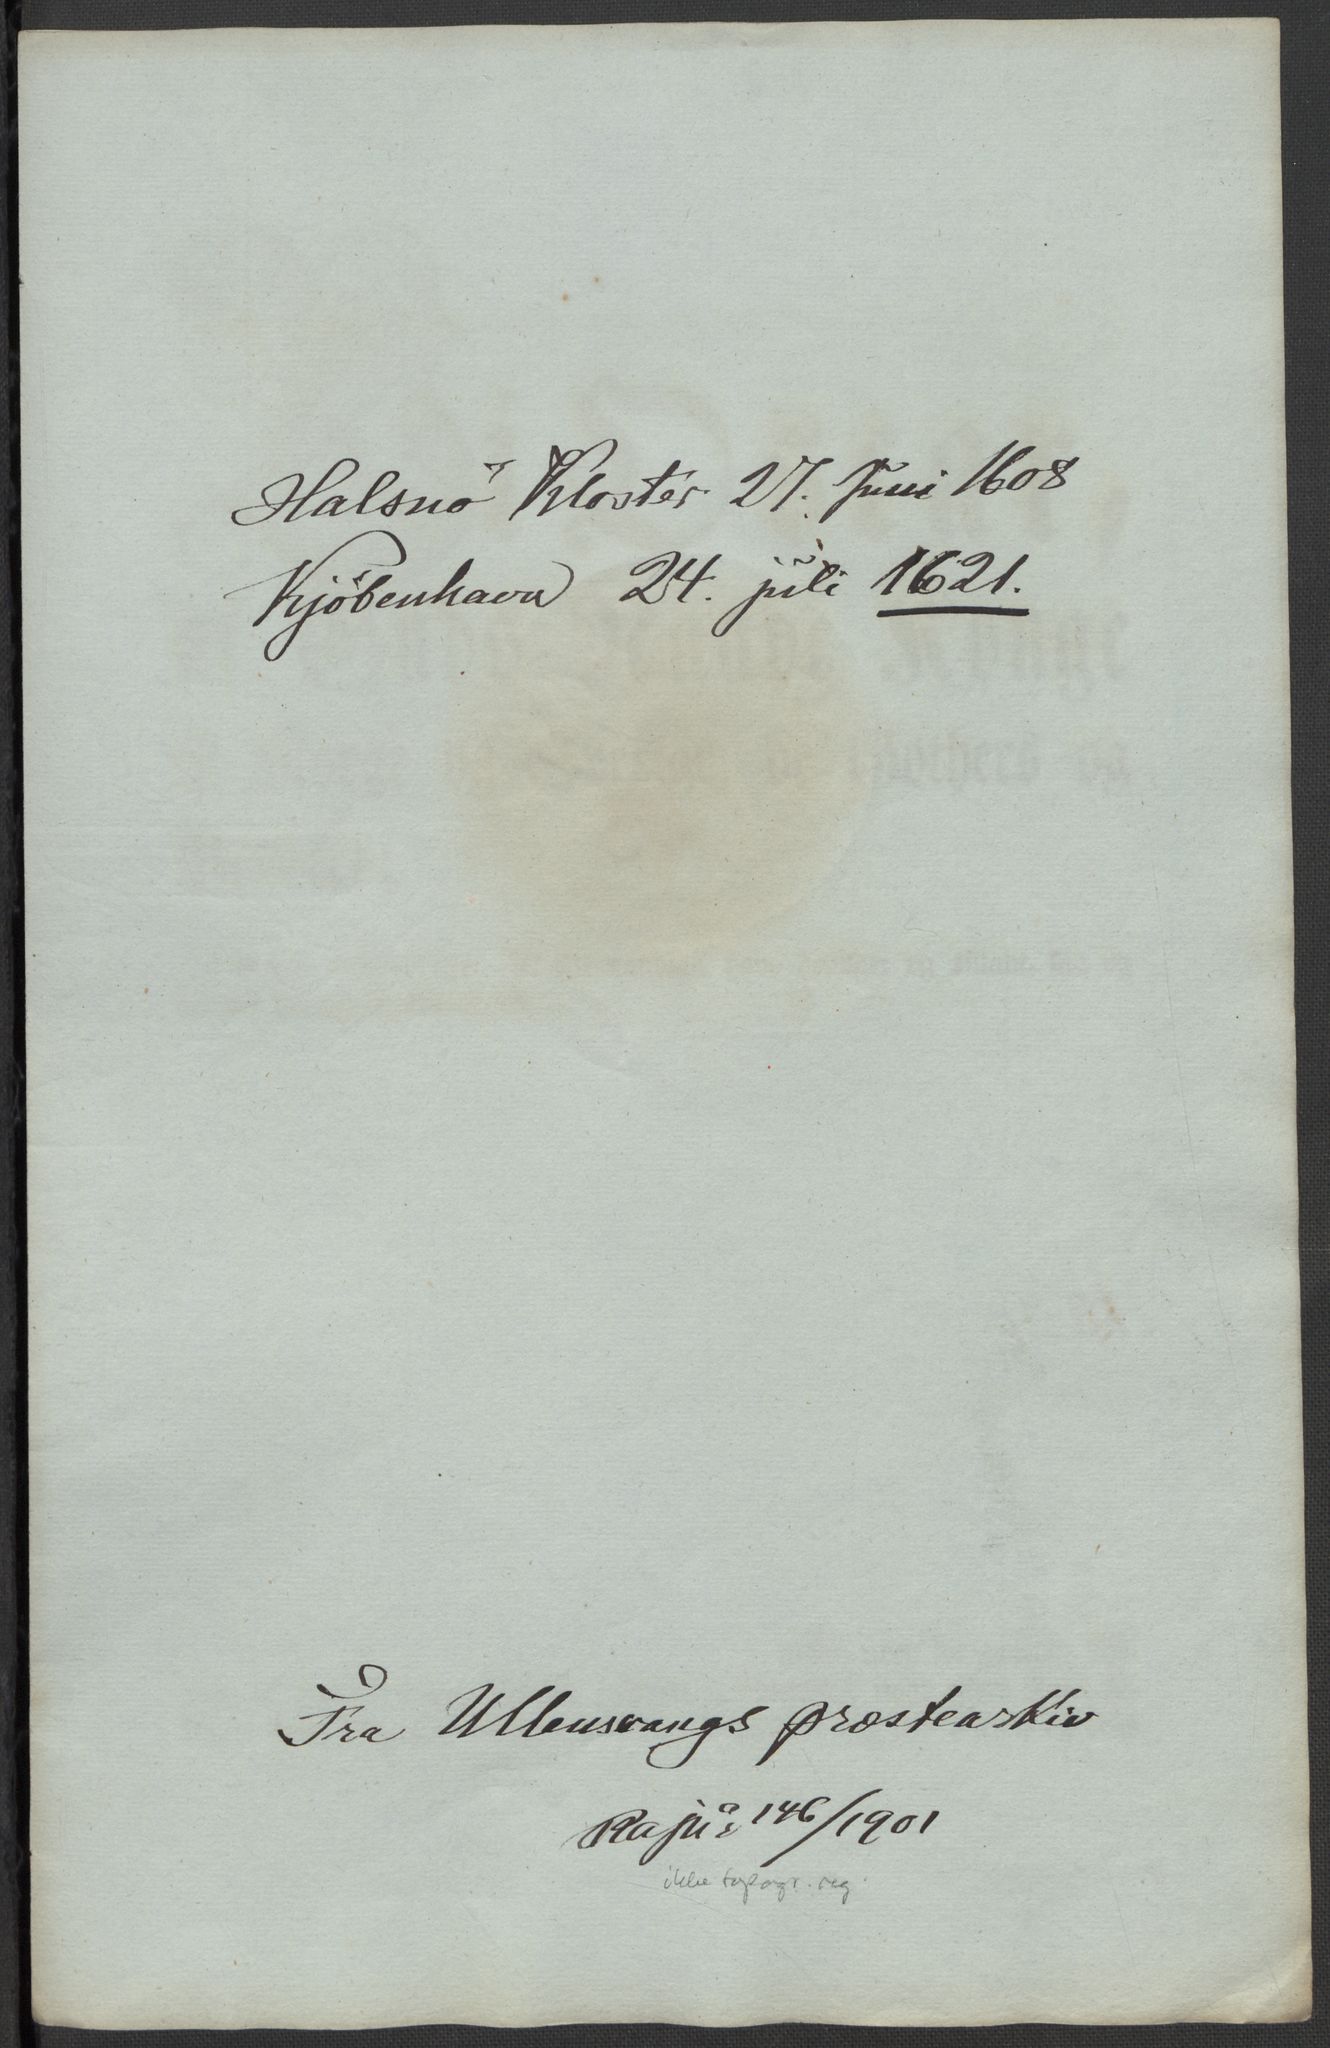 Halsnö Kloster 27. Juni 1608
Kjöbenhavn 24. juli 1621.
Fra Ullensvangs præstearkiv
146/1901
ikke topogr. reg.